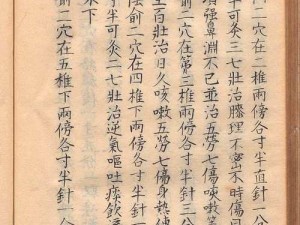 門二穴在二椎兩傍各寸半直針一分
半可灸三七壯治腠理不密不時傷
項強鼻淵不已並治五勞七傷咳嗽
俞二穴在第三椎兩傍各寸半針三分
至百壯治日久咳嗽五勞七傷身熱
陰俞二穴在四椎下兩傍各寸半針一
寸半可灸二七壯治逆氣嘔吐痰飲
下
俞二穴在五椎下兩傍各寸半針一分